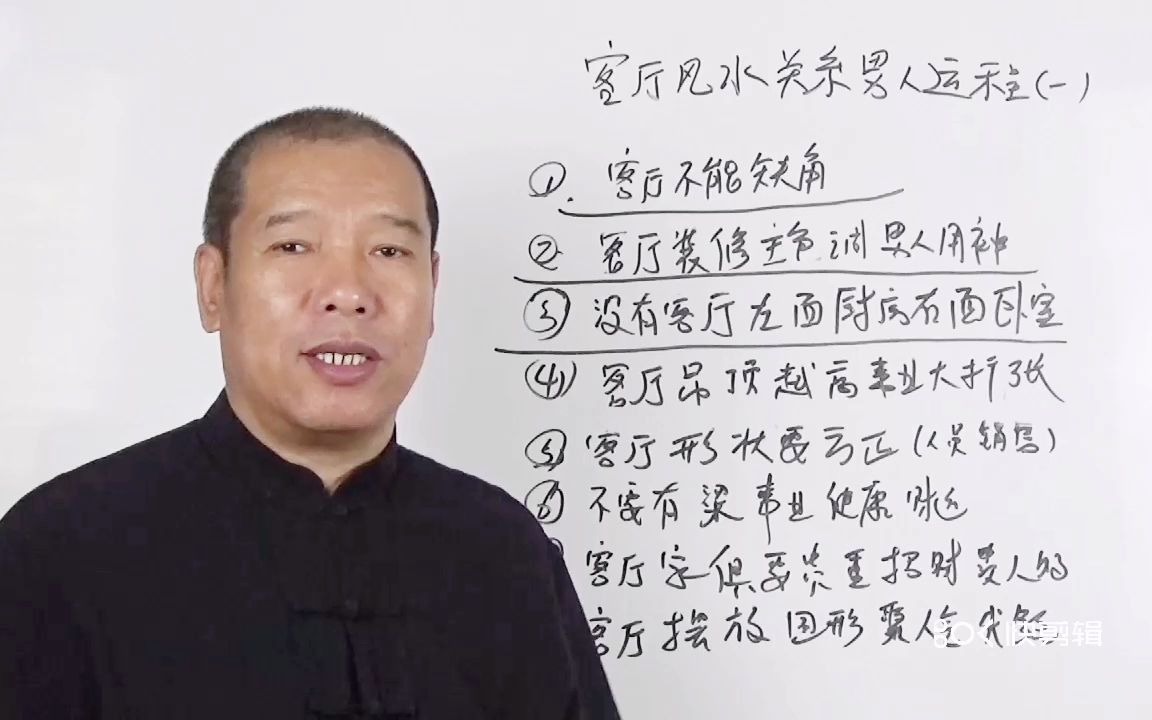 客厅风水关系男人运程(一)
①. 客厅不能缺角
② 客厅装修主色调男人用神
③ 没有客厅左面厨房右面卧室
④ 客厅吊顶越高事业大折扣
⑤ 客厅形状要方正(人员销售)
⑥ 不要有梁事业健康财运
客厅家俱要贵重招财贵人的
客厅摆放圆形聚人
快剪辑